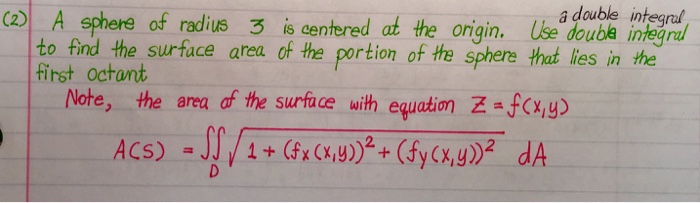 a double integral
(2) A sphere of radius 3 is centered at the origin. Use double integral
to find the surface area of the portion of the sphere that lies in the
first octant
Note, the area of the surface with equation Z = f(x,y)
A(S) = ∬ √ 1 + (fx(x,y))² + (fy(x,y))² dA
D